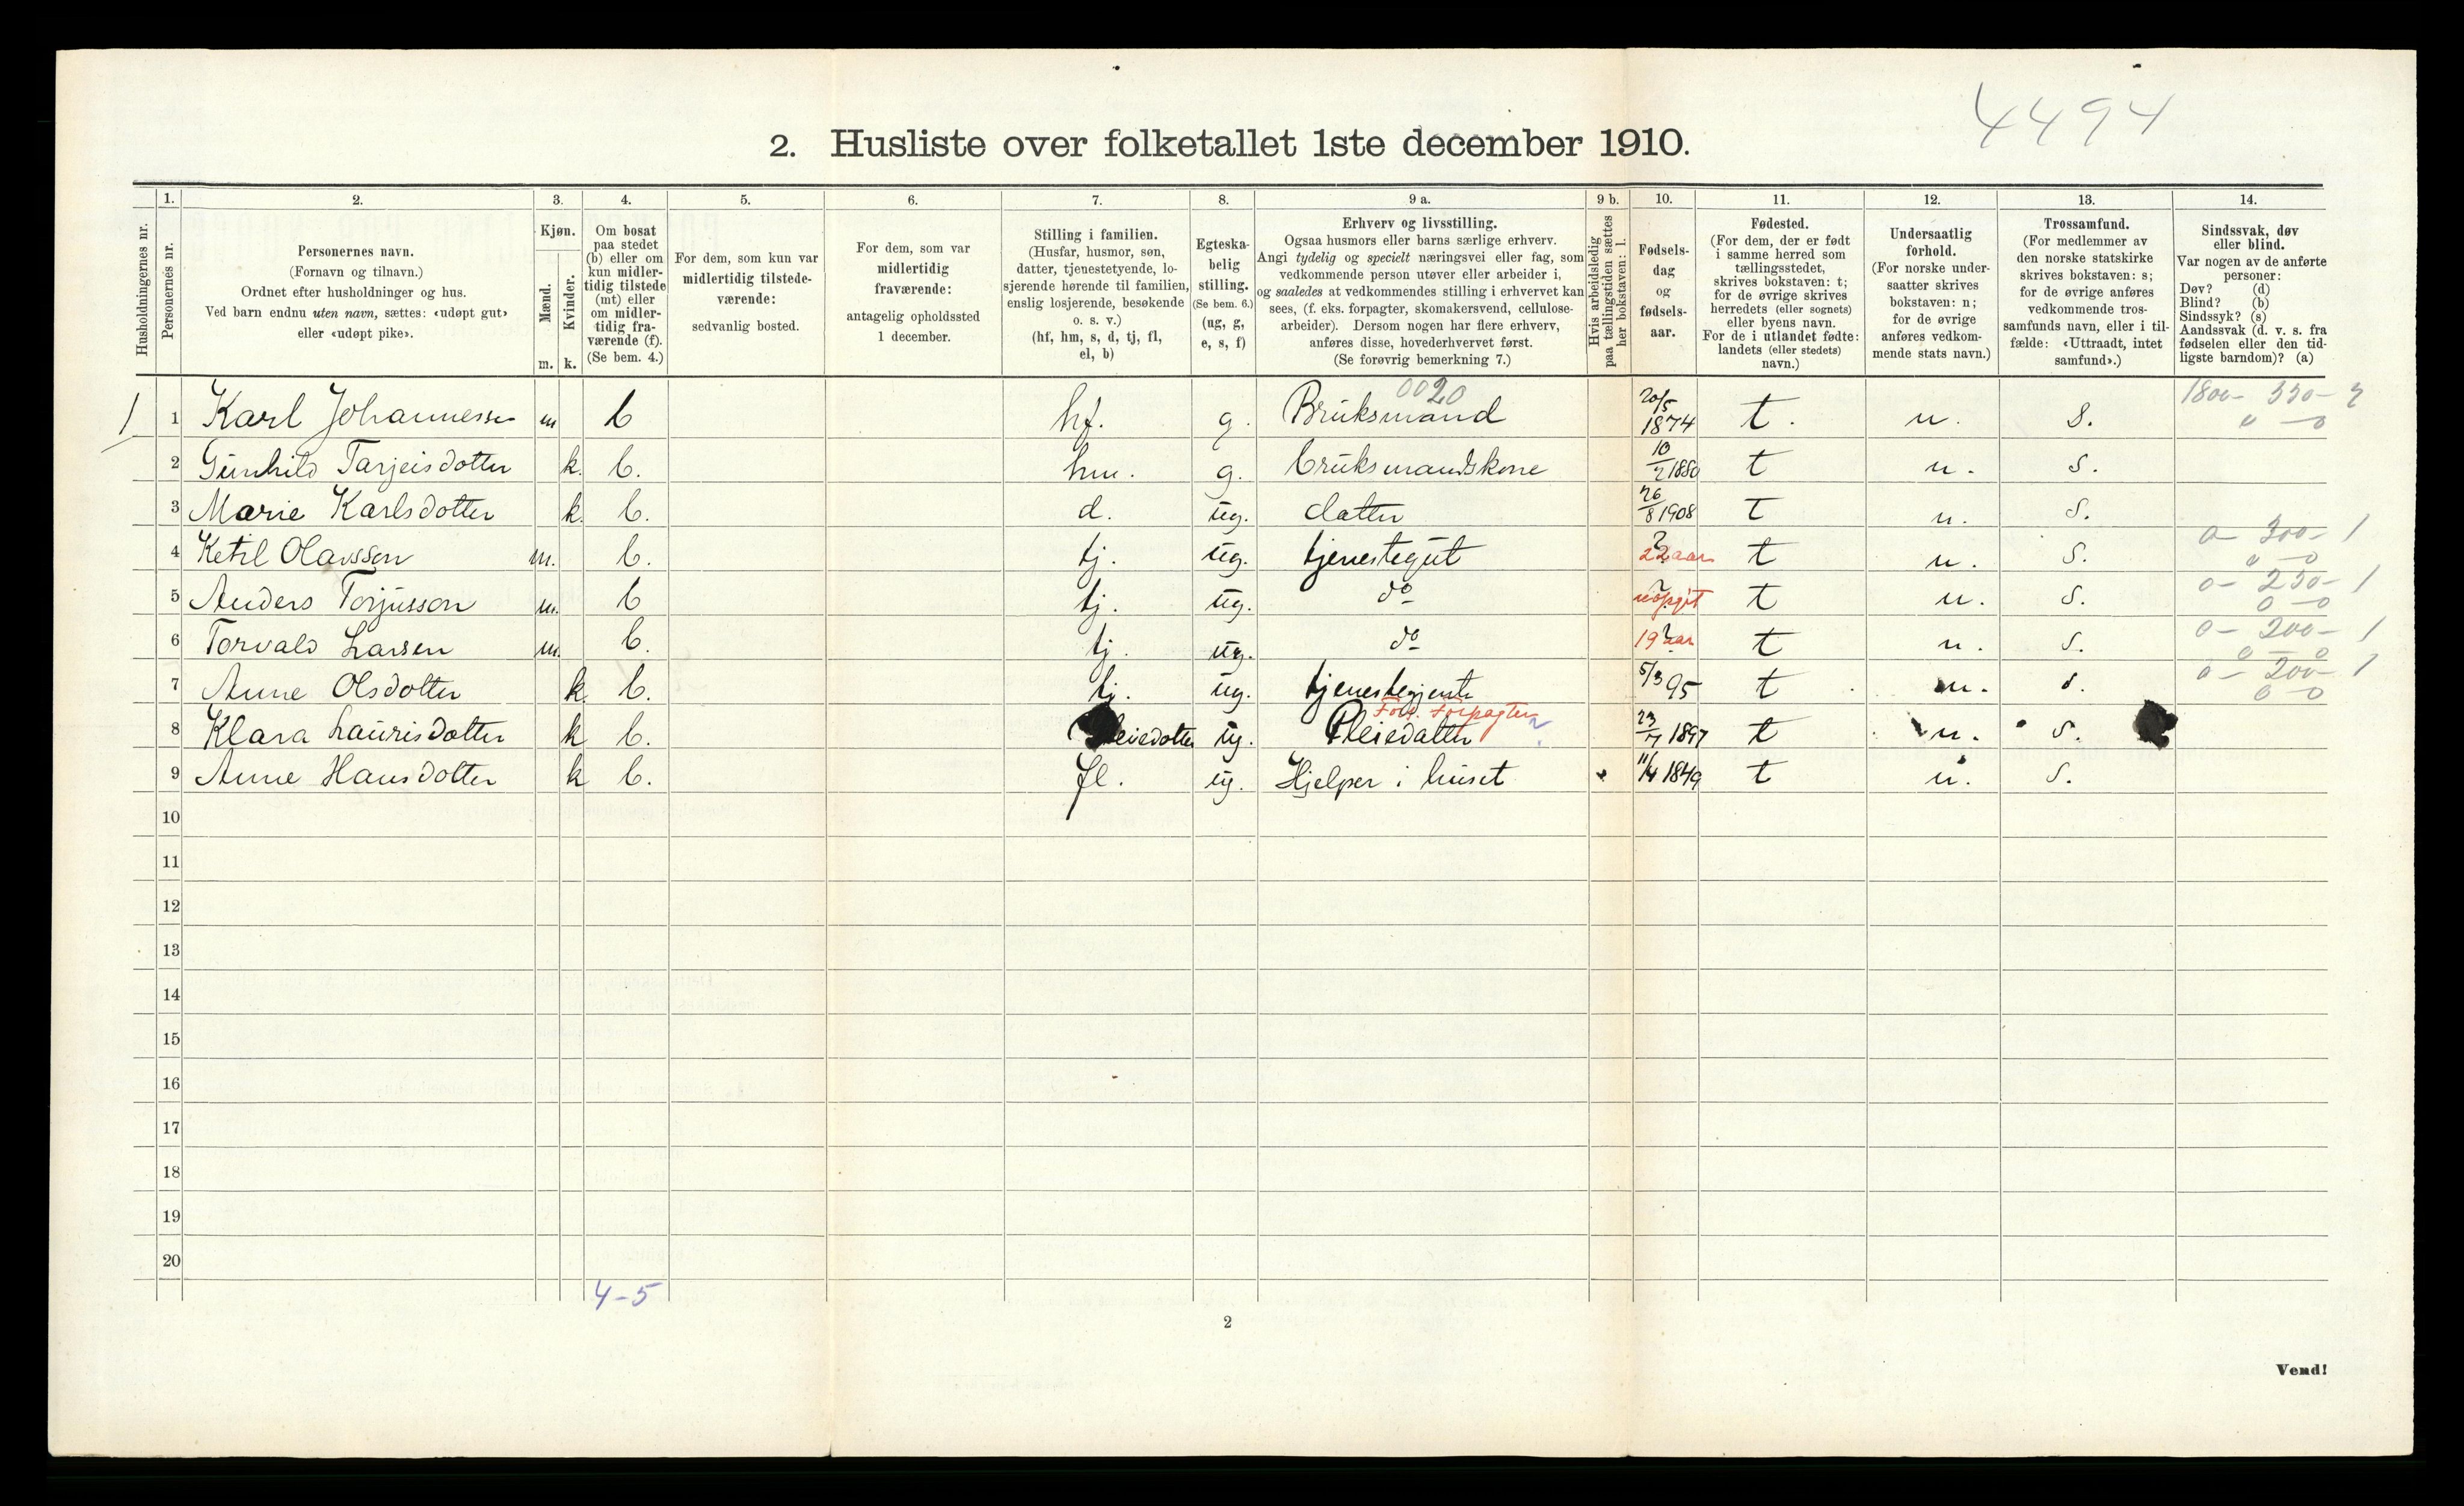 4494
2. Husliste over folketallet 1ste december 1910.
Husholdningernes nr.
1.
Personernes nr.
2.
Personernes navn.
(Fornavn og tilnavn.)
Ordnet efter husholdninger og hus.
Ved barn endnu uten navn, sættes: «udøpt gut»
eller «udøpt pike».
3.
Kjøn.
Mænd.
Kvinder.
m. k.
4.
Om bosat
paa stedet
(b) eller om
kun midler-
tidig tilstede
(mt) eller
om midler-
tidig fra-
værende (f).
(Se bem. 4.)
5.
For dem, som kun var
midlertidig tilstede-
værende:
sedvanlig bosted.
6.
For dem, som var
midlertidig
fraværende:
antagelig opholdssted
1 december.
7.
Stilling i familien.
(Husfar, husmor, søn,
datter, tjenestetyende, lo-
sjerende hørende til familien,
enslig losjerende, besøkende
o. s. v.)
(hf, hm, s, d, tj, fl,
el, b)
8.
Egteska-
belig
stilling.
(Se bem. 6.)
(ug, g,
e, s, f)
9 a.
Erhverv og livsstilling.
Ogsaa husmors eller barns særlige erhverv.
Angi tydelig og specielt næringsvei eller fag, som
vedkommende person utøver eller arbeider i,
og saaledes at vedkommendes stilling i erhvervet kan
sees, (f. eks. forpagter, skomakersvend, cellulose-
arbeider). Dersom nogen har flere erhverv,
anføres disse, hovederhvervet først.
(Se forøvrig bemerkning 7.)
9 b.
Hvis arbeidsledig
paa tællingstiden sættes
her bokstaven: l.
10.
Fødsels-
dag
og
fødsels-
aar.
11.
Fødested.
(For dem, der er født
i samme herred som
tællingsstedet,
skrives bokstaven: t;
for de øvrige skrives
herredets (eller sognets)
eller byens navn.
For de i utlandet fødte:
landets (eller stedets)
navn.)
12.
Undersaatlig
forhold.
(For norske under-
saatter skrives
bokstaven: n;
for de øvrige
anføres vedkom-
mende stats navn.)
13.
Trossamfund.
(For medlemmer av
den norske statskirke
skrives bokstaven: s;
for de øvrige anføres
vedkommende tros-
samfunds navn, eller i til-
fælde: «Uttraadt, intet
samfund».)
14.
Sindssvak, døv
eller blind.
Var nogen av de anførte
personer:
Døv? (d)
Blind? (b)
Sindssyk? (s)
Aandssvak (d. v. s. fra
fødselen eller den tid-
ligste barndom)? (a)
1 1 Karl Johannessen m b hf. g. Bruksmand 0020 20/5 1874 t. n. s.
2 Gunhild Tarjeisdotter k. b. hm. g. bruksmandskone 10/2 1880 t n. s.
3 Marie Karlsdotter k. b. d. ug. datter 26/8 1908 t n. s.
4 Ketil Olavsson m. b. tj. ug. tjenestegut ? 22 aar t n. s. 0 – 300 – 1 0 – 0
5 Anders Torjusson m. b tj. ug. do ? uopgit t n. s. 0 – 250 – 1 0 – 0
6 Torvald Larsen m. b. tj. ug. do ? 19 aar t n. s. 0 – 200 – 1 0 – 0
7 Anne Olsdotter k. b. tj. ug. tjenestegjente 5/3 95 t n. s. 0 – 200 – 1 0 – 0
8 Klara Laurisdotter k b. Pleiedotter ug. Pleiedatter Fors. Forpagter 23/7 1897 t n. s.
9 Anne Hansdotter k b. fl. ug. Hjelper i huset 11/4 1849 t n. s.
10
11
12
13
14
15
16
17
18
19
20
4-5
2
Vend!